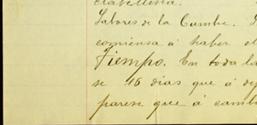 Labores de la Cumbre.
comiensa á haber
tiempo. En toda la
se 15 dias que á
parese que á